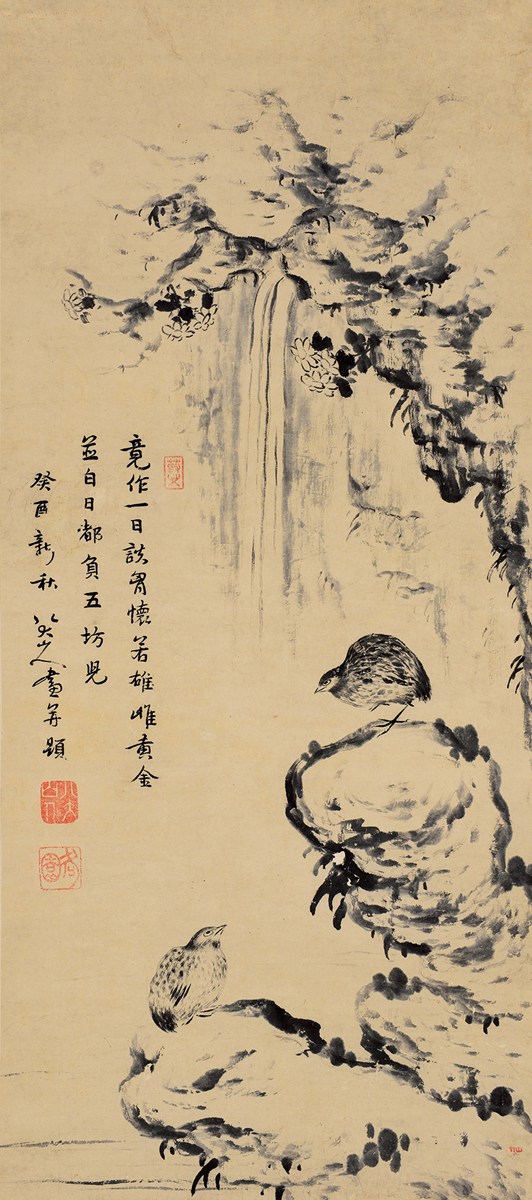 竟作一日談胷懷若雄雌黃金
並白日都負五坊兒
癸酉新秋八大山人畫并題
八大山人